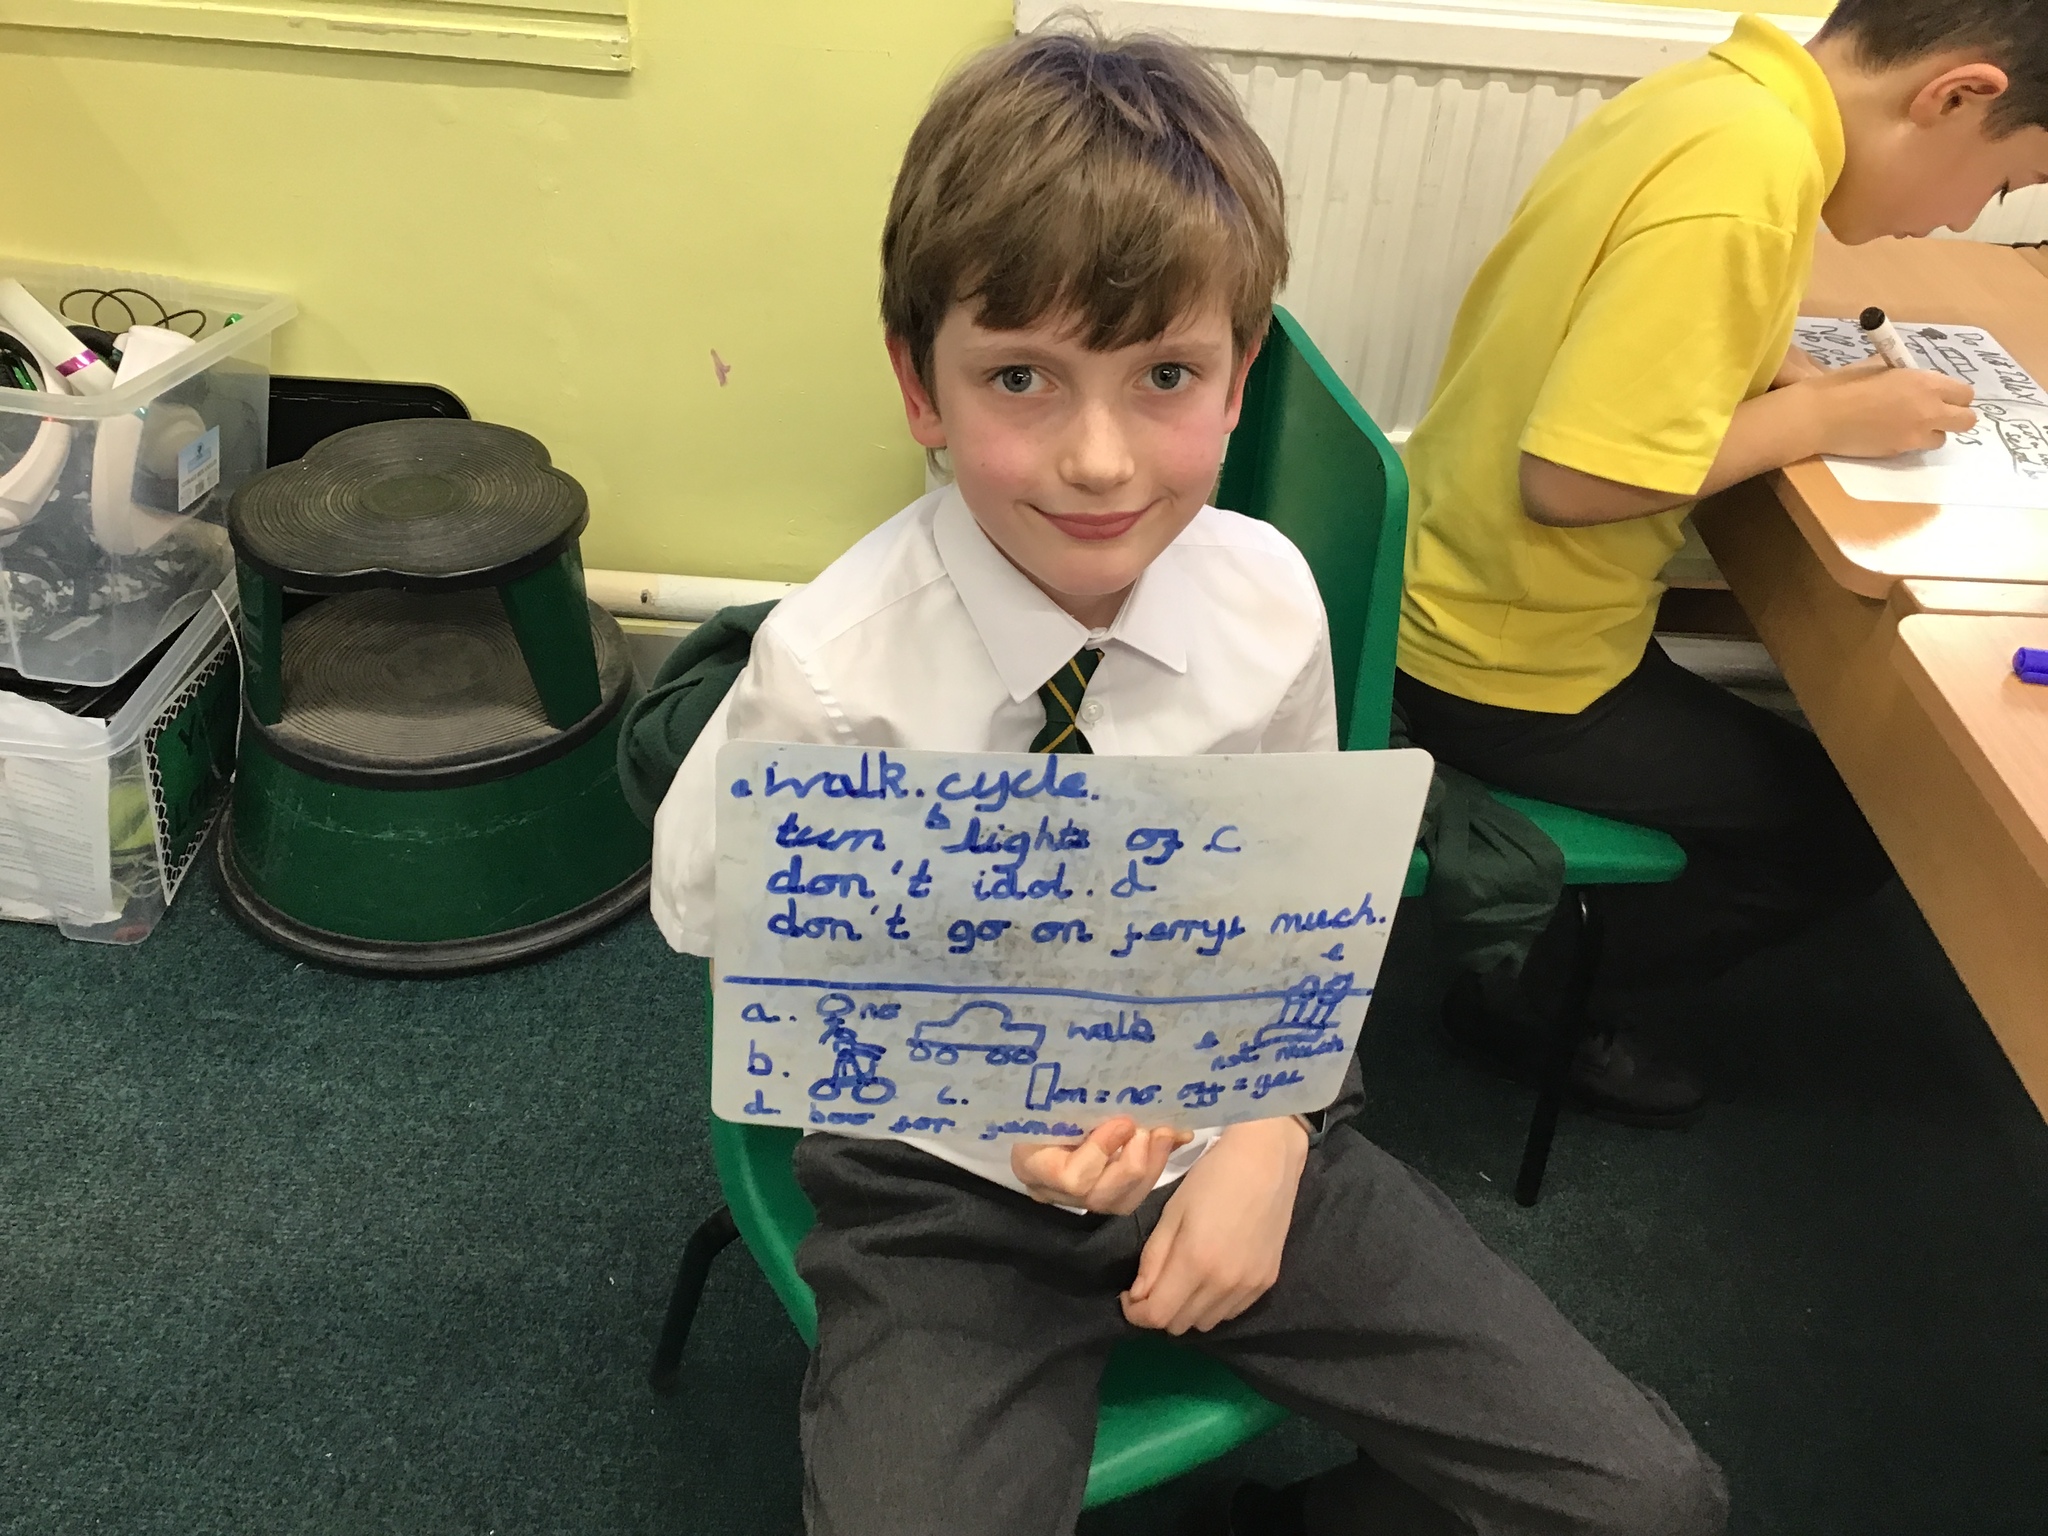 a walk. cycle.
turn b lights of .c
don't idol. d
don't go on ferrys much.
e
a. no walk e
not much
b. c. on = no. off = yes
d boo for
Do Not Idol